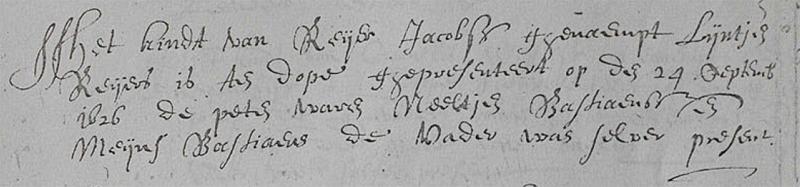 Het kindt van Reijer Jacobss ghenaempt Lijntjen
Reijers is ten dope ghepresenteert op den 24 Septemb
1626 de peten waren Neeltjen Bastiaenss en
Meijns Bastiaens de Vader was selver present.